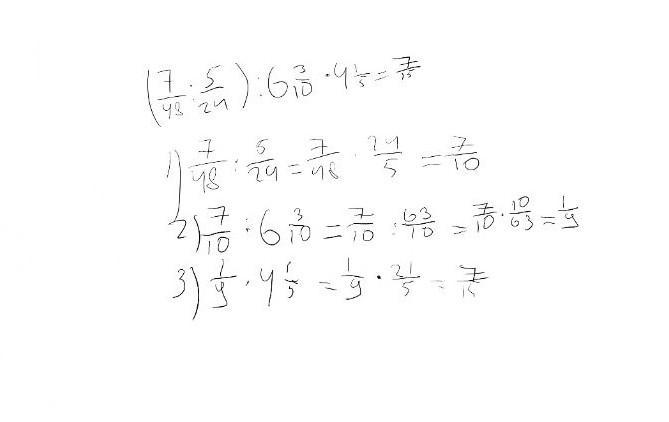 (7/48 : 5/24) : 6 3/10 · 4 1/5 = 7/15
1) 7/48 : 5/24 = 7/48 · 24/5 = 7/10
2) 7/10 : 6 3/10 = 7/10 : 63/10 = 7/10 · 10/63 = 1/9
3) 1/9 · 4 1/5 = 1/9 · 21/5 = 7/15